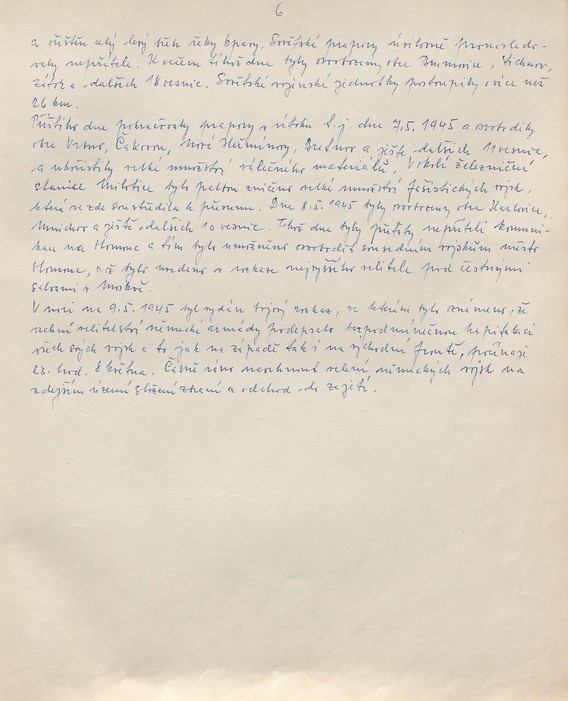 6
a čištěn celý levý břeh řeky Opavy. Sovětské prapory úsilovně pronásledo-
valy nepřítele. K večeru téhož dne byly osvobozeny obce Brumovice, Lichnov,
Zátor a dalších 18 vesnic. Sovětské vojenské jednotky postoupily o více než
26 km.
Příštího dne pokračovaly prapory v útoku t.j. dne 7.5. 1945 a osvobodily
obce Vrbno, Čakovou, Nové Heřminovy, a ještě dalších 11 vesnic,
a ukořistily velké množství válečného materiálu. V okolí železniční
stanice Milotice bylo zničeno velké množství fašistických vojsk,
která se zde soustředila k přesunu. Dne 8.5. 1945 byly osvobozeny obce Karlovice,
Mnichov a ještě dalších 10 vesnic. Téhož dne byly přeťaty nepříteli komuni-
kace na Olomouc a tím bylo umožněno osvobodit sousedním vojskům město
Olomouc, což bylo uvedeno v rozkaze nejvyššího velitele pod čestnými
salvami v Moskvě.
V noci na 9.5. 1945 byl vydán bojový rozkaz, ve kterém bylo známeno, že
vrchní velitelství německé armády podepsalo bezpodmínečnou kapitulaci
všech svých vojsk a to jak na západě tak i na východní frontě, počínaje
23. hod. 8 května. Časně ráno navrhnuto velení německých vojsk na
zdejším území složení zbraní a odchod do zajetí.